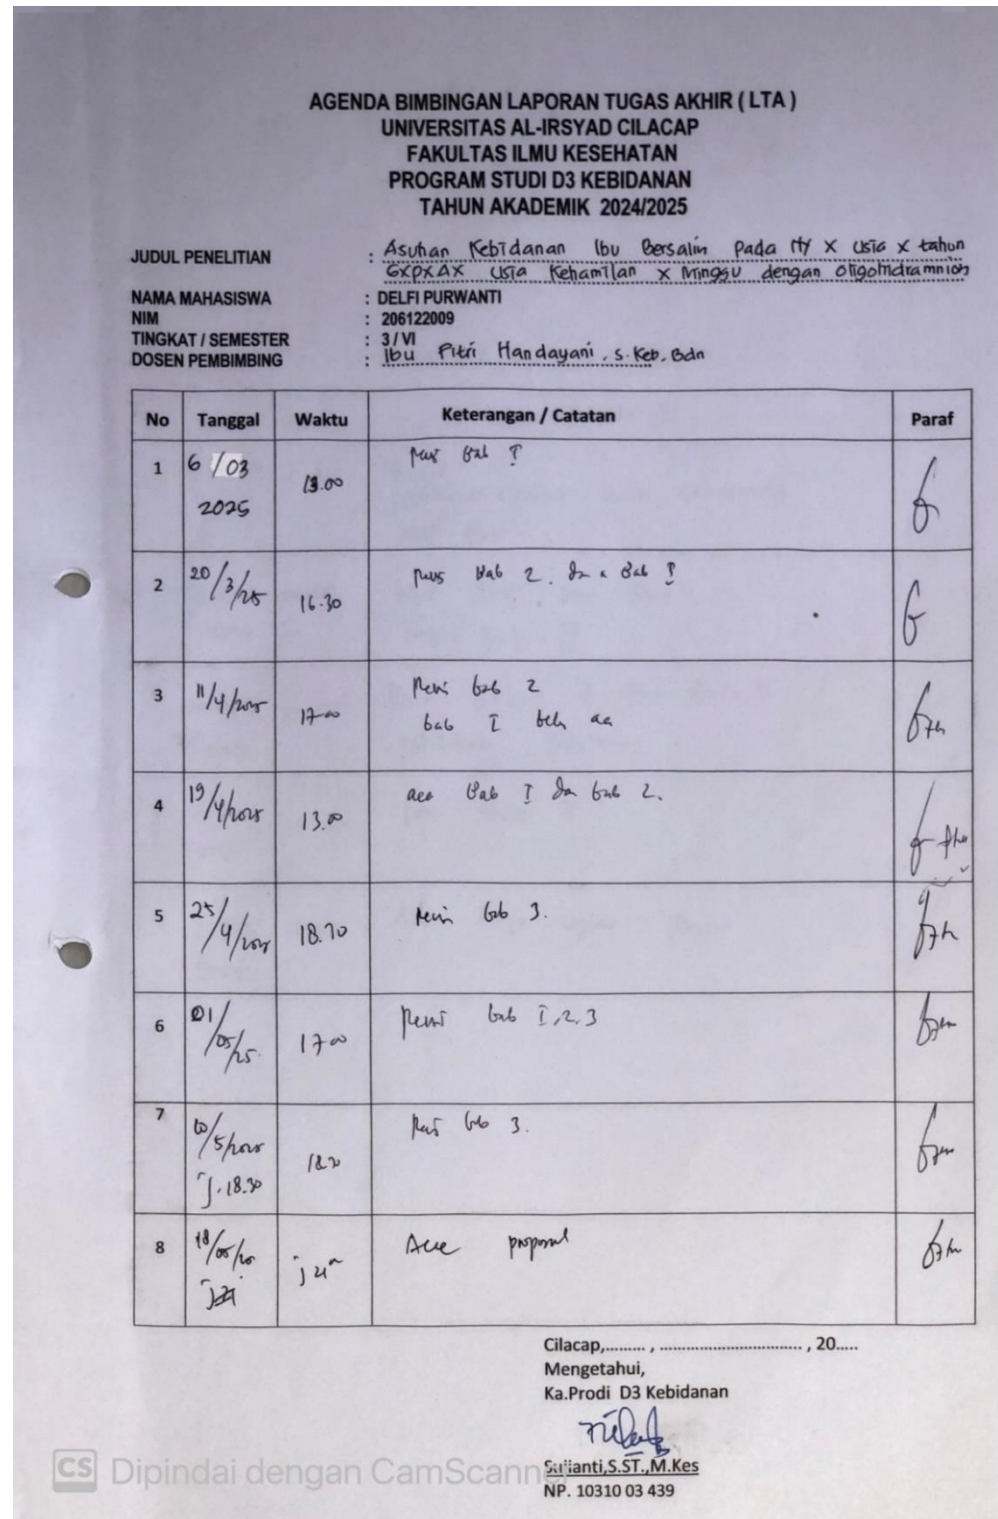 AGENDA BIMBINGAN LAPORAN TUGAS AKHIR ( LTA )
UNIVERSITAS AL-IRSYAD CILACAP
FAKULTAS ILMU KESEHATAN
PROGRAM STUDI D3 KEBIDANAN
TAHUN AKADEMIK 2024/2025
JUDUL PENELITIAN : Asuhan Kebidanan Ibu Bersalin Pada Ny X Usia X tahun
GXPXAX Usia Kehamilan X Minggu dengan oligohidramnion
NAMA MAHASISWA : DELFI PURWANTI
NIM : 206122009
TINGKAT / SEMESTER : 3 / VI
DOSEN PEMBIMBING : Ibu Fitri Handayani, S.Keb, Bdn
No Tanggal Waktu Keterangan / Catatan Paraf
1 6/03 2025 13.00 bab I
2 20/3/25 16.30 Bab 2. Bab I
3 11/4/2025 17.00 Revisi bab 2
bab I
4 19/4/2025 13.00 acc Bab I dan bab 2.
5 25/4/2025 bab 3.
6 01/05/25. 17.00 Revisi bab I, 2, 3
7 10/5/2025 bab 3.
j. 18.30
8 18/05/25 Acc proposal
Cilacap,......... , ................................. , 20.....
Mengetahui,
Ka.Prodi D3 Kebidanan
Sujianti,S.ST.,M.Kes
NP. 10310 03 439
CS Dipindai dengan CamScanner